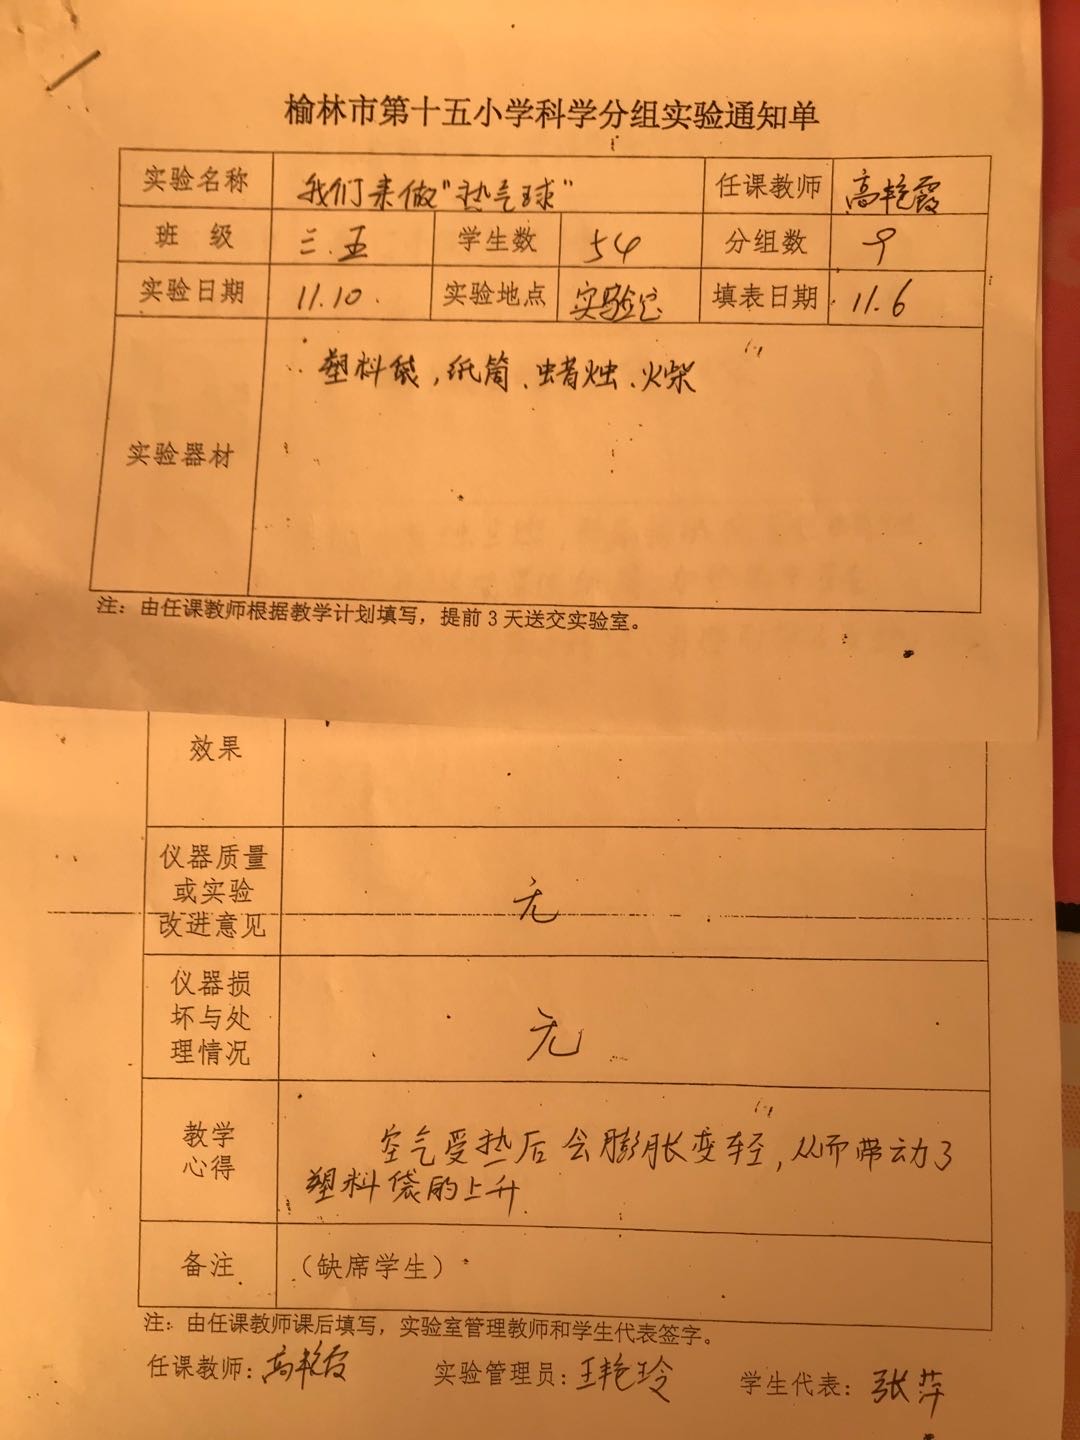 榆林市第十五小学科学分组实验通知单
实验名称 我们来做"热气球" 任课教师 高艳霞
班 级 三.五 学生数 54 分组数 9
实验日期 11.10. 实验地点 实验室 填表日期 11.6
塑料袋,纸筒、蜡烛、火柴
实验器材
注：由任课教师根据教学计划填写，提前3天送交实验室。
效果
仪器质量
或实验
改进意见
无
仪器损
坏与处
理情况
无
教学
心得
空气受热后会膨胀变轻,从而带动了
塑料袋的上升
备注 （缺席学生）
注：由任课教师课后填写，实验室管理教师和学生代表签字。
任课教师：高艳霞 实验管理员：王艳玲 学生代表：张萍